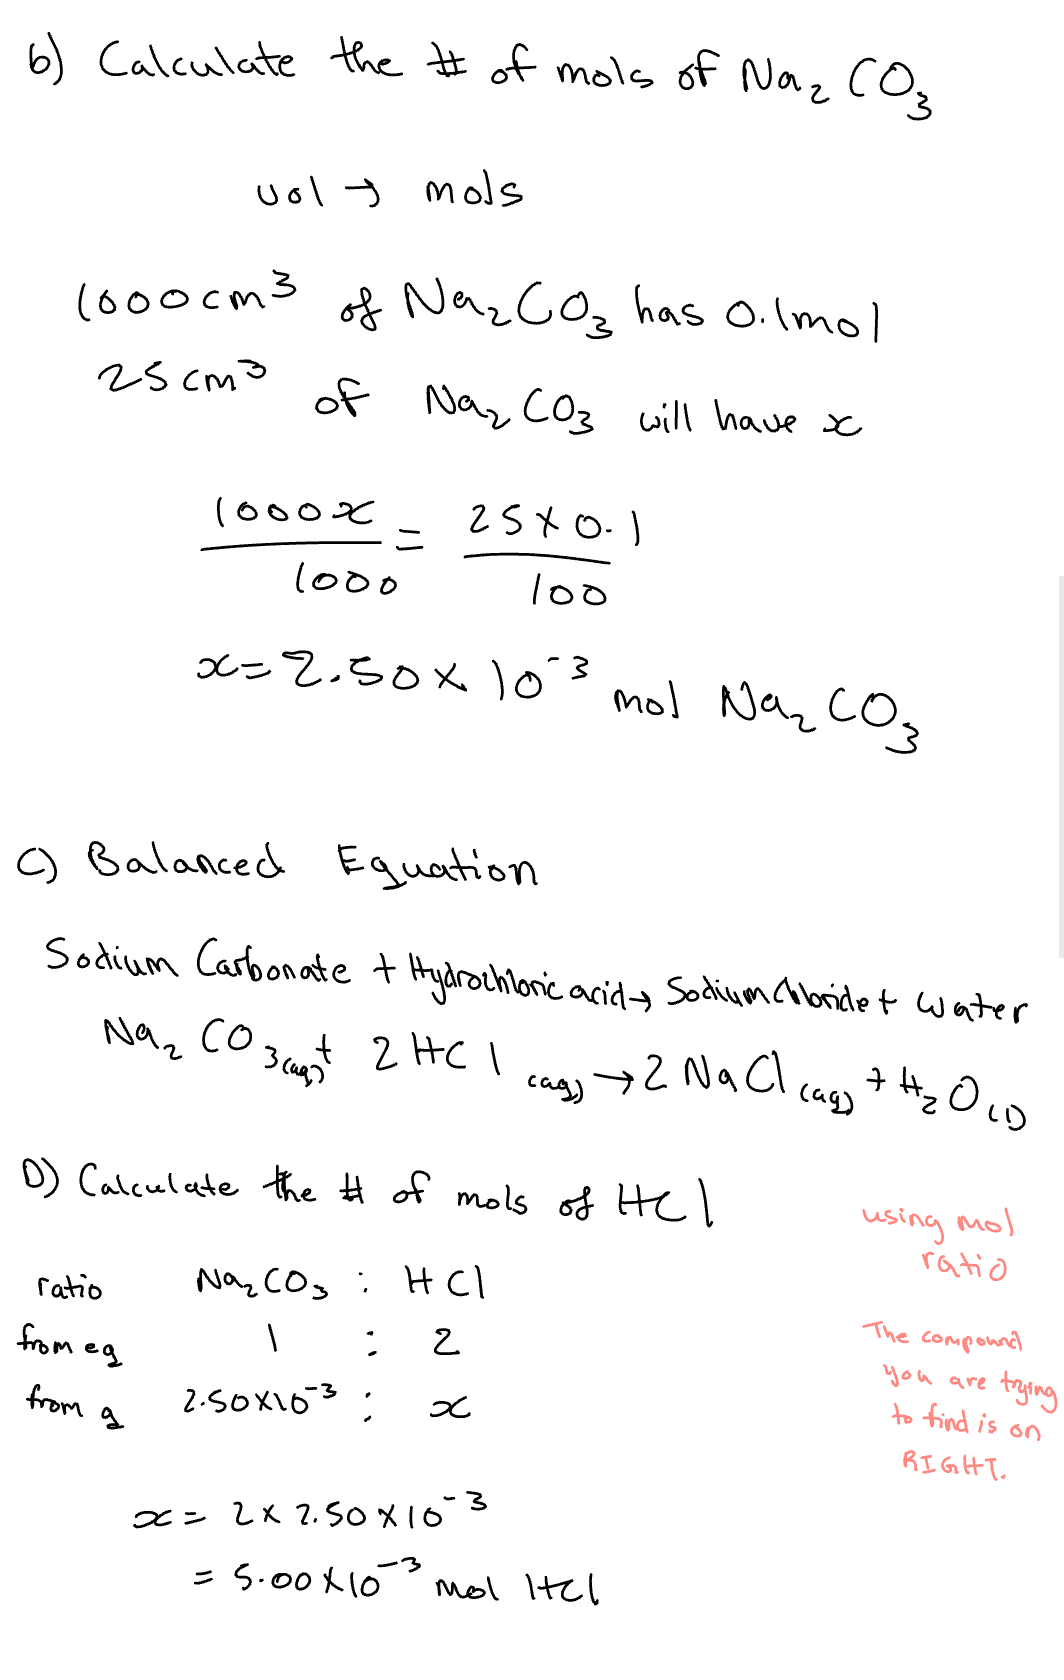 b) Calculate the # of mols of Na₂CO₃
vol → mols
1000cm³ of Na₂CO₃ has 0.1mol
25cm³ of Na₂CO₃ will have x
1000x = 25×0.1
1000 100
x = 2.50×10⁻³ mol Na₂CO₃
c) Balanced Equation
Sodium Carbonate + Hydrochloric acid → Sodium Chloride + Water
Na₂CO₃(aq) + 2HCl(aq) → 2NaCl(aq) + H₂O(l)
D) Calculate the # of mols of HCl
using mol
ratio
ratio Na₂CO₃ : HCl
from eq 1 : 2
from q 2.50×10⁻³ : x
The compound
you are trying
to find is on
RIGHT.
x = 2×2.50×10⁻³
= 5.00×10⁻³ mol HCl